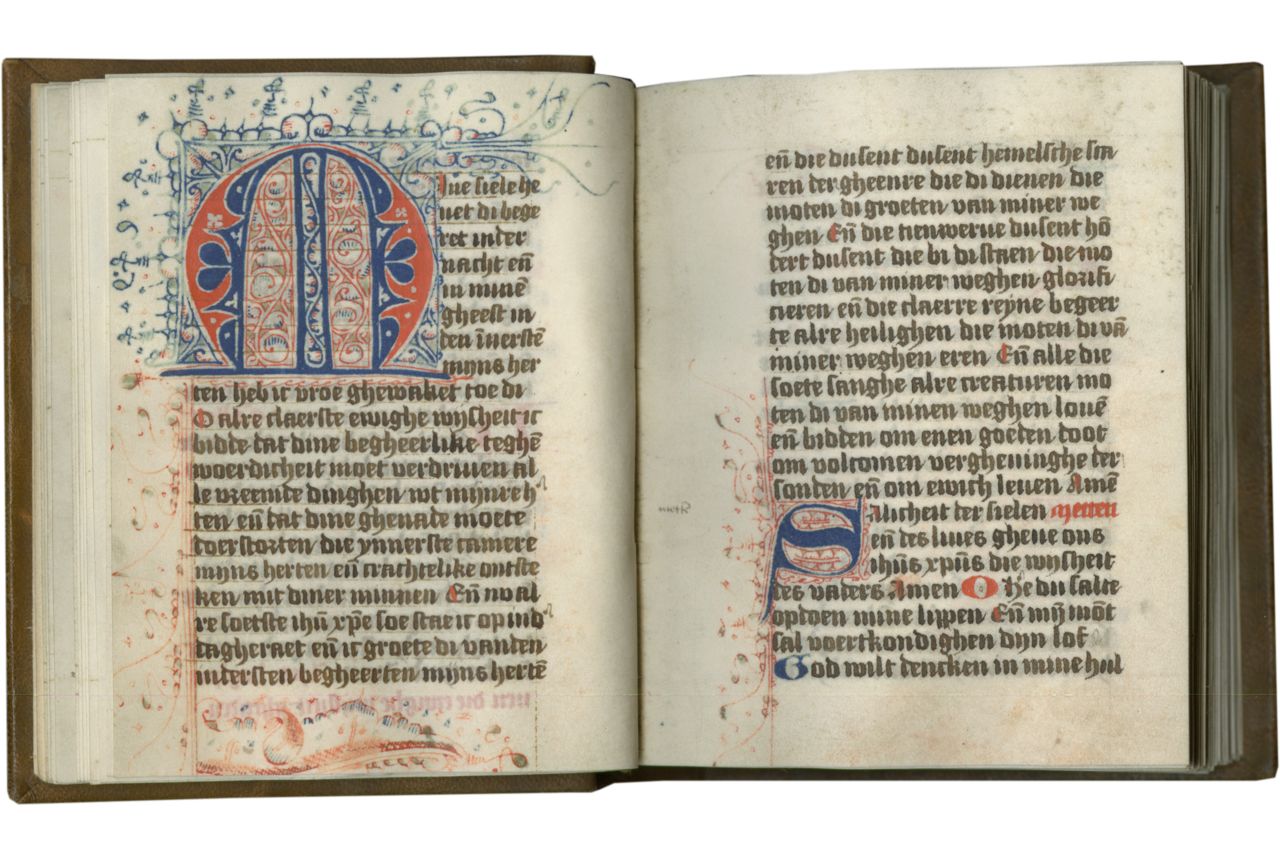 Mine siele he
uet di bege
ret inder
nacht eñ
in minē
gheest in
den innerstē
mijns her
ten heb ic vroe ghewaket toe di
O alre claerste ewighe wijsheit ic
bidde dat dine begheerlike teghē
woerdicheit moet verdriuen al
le vreemde dinghen wt mijnre h'
ten eñ dat dine ghenade moete
doerstorten die ynnerste camere
mijns herten eñ crachtelike ontste
ken mit diner minnen Eñ nv al
re soetste ihū xp̄e soe stae ic op ind'
dagheraet eñ ic groete di vanden
intersten begheerten mijns hertē
eñ die dusent dusent hemelsche sca
ren der gheenre die di dienen die
moten di groeten van miner we
ghen Eñ die tienwerue dusent hō
dert dusent die bi di staen die mo
ten di van miner weghen glorifi
cieren eñ die claerre reyne begeer
te alre heilighen die moten di vā
miner weghen eren Eñ alle die
soete sanghe alre creaturen mo
ten di van minen weghen louē
eñ bidden om enen goeden doot
om volcomen vergheuinghe der
sonden eñ om ewich leuen Amē
Salicheit der sielen metten
eñ des liues gheue ons
ihūs xpūs die wijsheit
des vaders Amen O He du salte
opdoen mine lippen Eñ mȳ mōt
sal voertkondighen dijn lof
God wilt dencken in mine hul